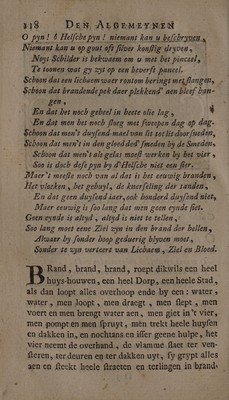 118 DEN ALGEMEYNEN
O pyn! ô Helsche pyn! niemant kan u beschryven,
Niemant kan u op gout oft silver konstig dryven,
Noyt Schilder is bekwaem om u met het pinceel,
Te toonen wat gy zyt op een beverft paneel.
Schoon dat een lichaem waer rontom beringt met slangen,
Schoon dat brandende pek daer plekkend' aen bleef hangen,
En dat het noch geheel in heete olie lag,
En dat men het noch sloeg met sweepen dag op dag.
Schoon dat men't duysend mael van lit tot lit doorsneden,
Schoon dat men't in den gloed ded' smeden by de Smeden,
Schoon dat men't als gelas moest werken by het vier,
Soo is doch dese pyn by d'Helsche niet een sier.
Maer 't meeste noch van al dat is het eeuwig branden,
Het vloeken, het gehuyl, de knerseling der tanden,
En dat geen duysend jaer, ook honderd duysend niet,
Maer eeuwig is soo lang dat men geen eynde siet.
Geen eynde is altyd, altyd is niet te tellen,
Soo lang moet eene Ziel zyn in den brand der hellen,
Alwaer by sonder hoop geduerig blyven moet,
Sonder te zyn verteert van Lichaem, Ziel en Bloed.
BRand, brand, brand, roept dikwils een heel
huys-houwen, een heel Dorp, een heele Stad,
als dan loopt alles overhoop ende by een: water,
water, men loopt, men draegt, men slept, men
voert en men brengt water aen, men giet in't vier,
men pompt en men spruyt, men trekt heele huysen
en dakken in, en nochtans en isser geene hulpe, het
vier neemt de overhand, de vlamme slaet ter vensteren,
ter deuren en ter dakken uyt, sy grypt alles
aen en steekt heele straeten en terlingen in brand.